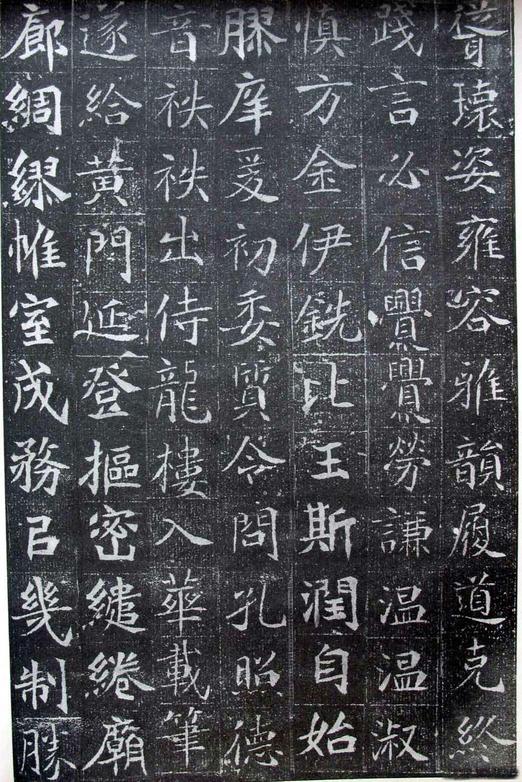 瓌姿雍容雅韻履道克終
踐言必信亹亹勞謙温温淑
慎方金伊銑比玉斯潤自始
膠庠爰初委質令問孔照德
音袟袟出侍龍樓入華載筆
遂給黃門延登摳密繾綣廟
廊綢繆帷室成務㠯幾制勝